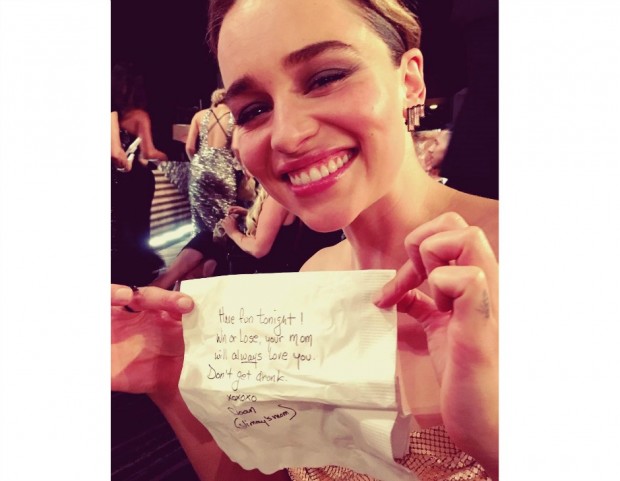 Have fun tonight!
Win or Lose, your mom
will always love you.
Don't get drunk.
xoxoxo
(Jimmy's mom)